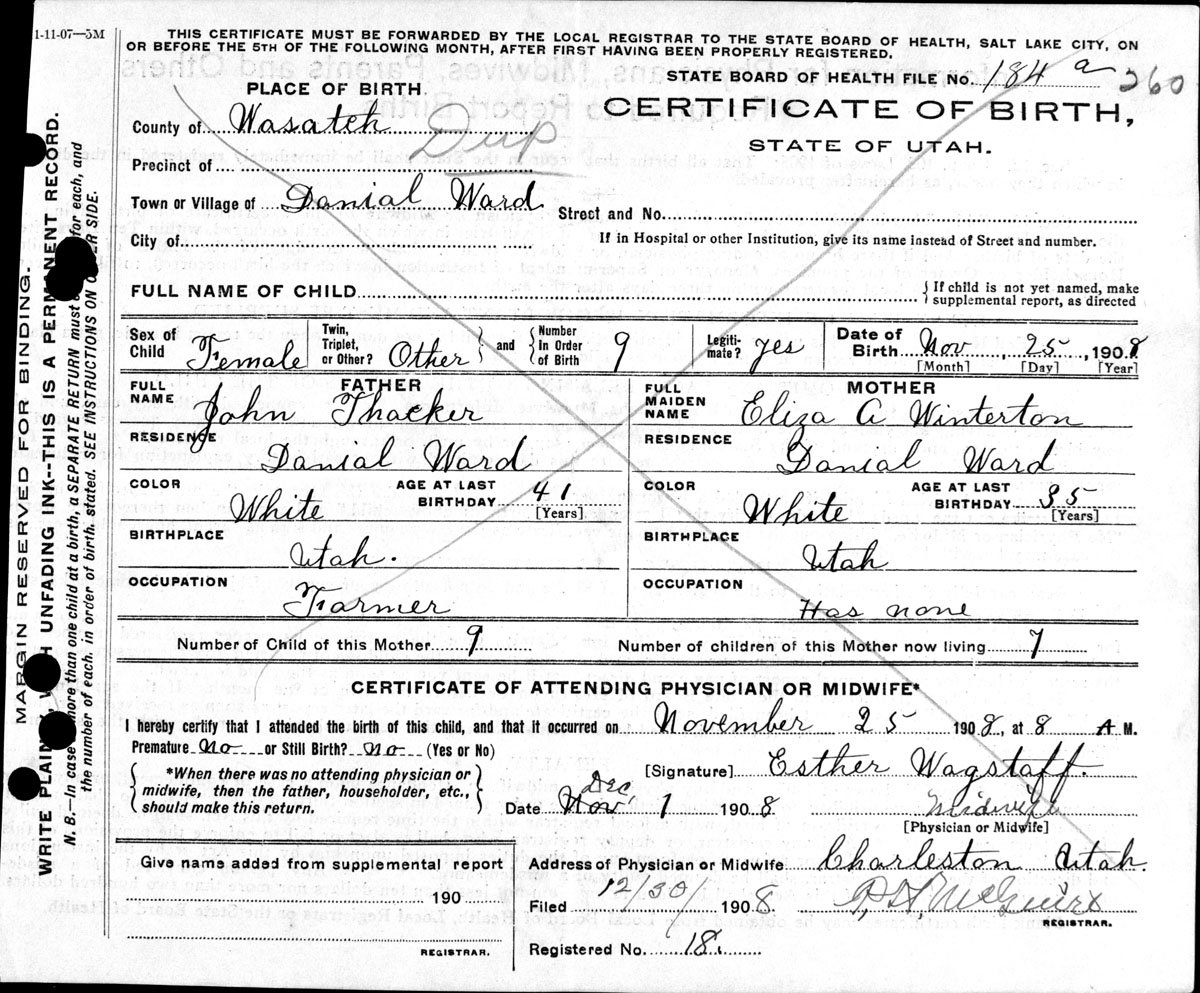 1-11-07—5M
THIS CERTIFICATE MUST BE FORWARDED BY THE LOCAL REGISTRAR TO THE STATE BOARD OF HEALTH, SALT LAKE CITY, ON
OR BEFORE THE 5TH OF THE FOLLOWING MONTH, AFTER FIRST HAVING BEEN PROPERLY REGISTERED.
STATE BOARD OF HEALTH FILE No. 184 a 260
PLACE OF BIRTH.
CERTIFICATE OF BIRTH,
STATE OF UTAH.
County of Wasatch
Dup
Precinct of
Town or Village of Danial Ward
Street and No.
City of
If in Hospital or other Institution, give its name instead of Street and number.
FULL NAME OF CHILD
{If child is not yet named, make
supplemental report, as directed
Sex of Child Female
Twin, Triplet, or Other? Other } and { Number In Order of Birth 9
Legiti-mate? yes
Date of Birth Nov, 25, 1908
[Month] [Day] [Year]
FATHER
FULL NAME John Thacker
RESIDENCE
Danial Ward
COLOR White
AGE AT LAST BIRTHDAY 41
[Years]
BIRTHPLACE
Utah.
OCCUPATION
Farmer
MOTHER
FULL MAIDEN NAME Eliza A Winterton
RESIDENCE
Danial Ward
COLOR White
AGE AT LAST BIRTHDAY 35
[Years]
BIRTHPLACE
Utah
OCCUPATION
Has none
Number of Child of this Mother 9
Number of children of this Mother now living 7
CERTIFICATE OF ATTENDING PHYSICIAN OR MIDWIFE*
I hereby certify that I attended the birth of this child, and that it occurred on November 25 1908, at 8 A M.
Premature No or Still Birth? No (Yes or No)
{ *When there was no attending physician or
midwife, then the father, householder, etc.,
should make this return. }
[Signature] Esther Wagstaff.
Dec
Date Nov 1 1908
Midwife
[Physician or Midwife]
Give name added from supplemental report
190
REGISTRAR.
Address of Physician or Midwife Charleston Utah.
Filed 12/30/ 1908
P. H. McGuire
REGISTRAR.
Registered No. 18.
MARGIN RESERVED FOR BINDING.
WRITE PLAINLY WITH UNFADING INK--THIS IS A PERMANENT RECORD.
N. B.—In case more than one child at a birth, a SEPARATE RETURN must for each, and
the number of each, in order of birth, stated. SEE INSTRUCTIONS ON OTHER SIDE.